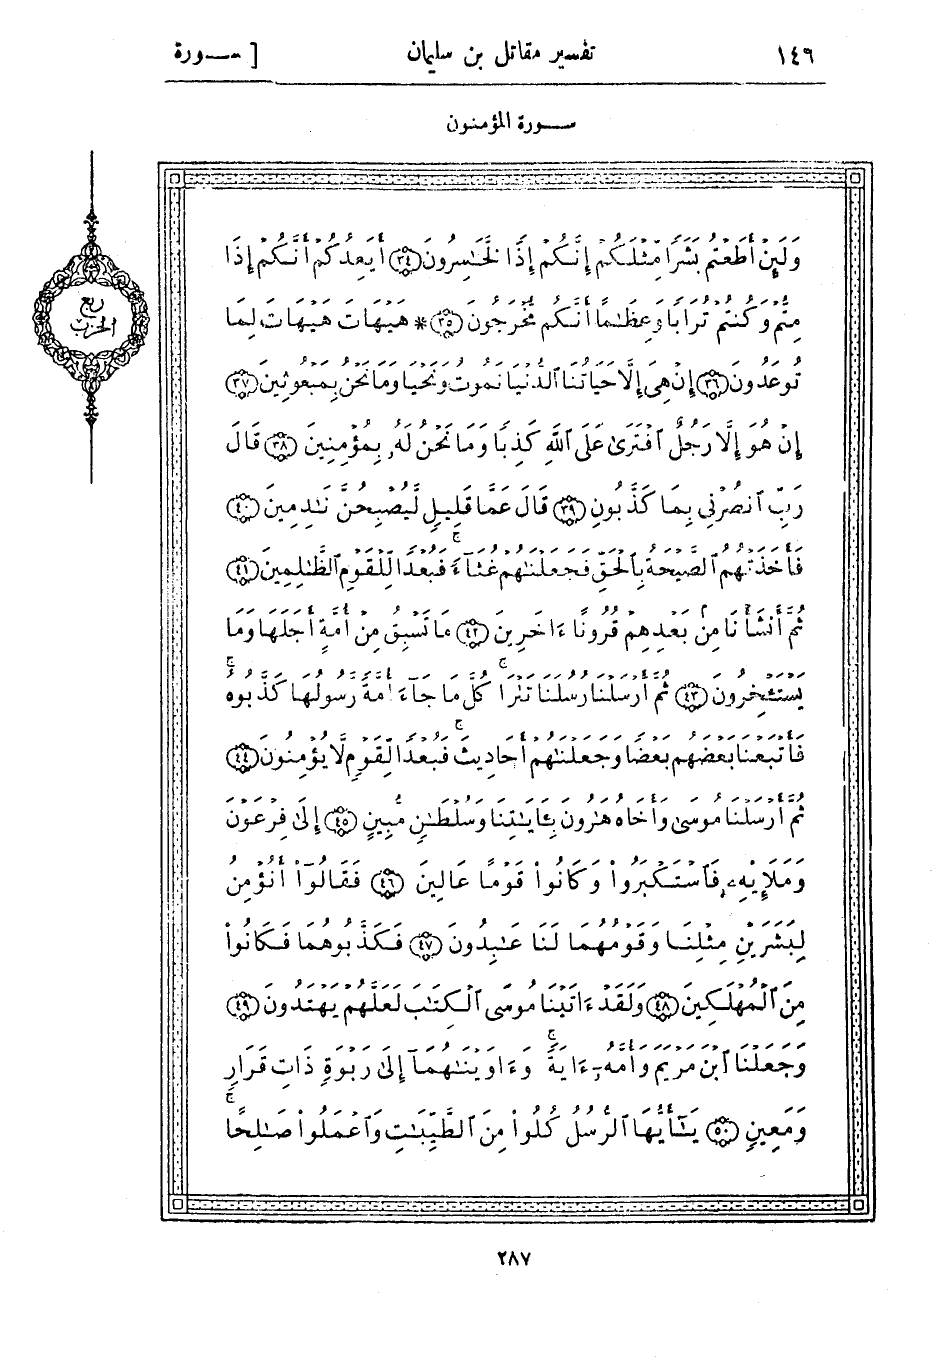 ١٤٦ تفسير مقاتل بن سليمان [ سـورة
سـورة المؤمنون
ربع
الحزب
وَلَئِنْ أَطَعْتُم بَشَرًا مِّثْلَكُمْ إِنَّكُمْ إِذًا لَّخَـٰسِرُونَ ٣٤ أَيَعِدُكُمْ أَنَّكُمْ إِذَا
مِتُّمْ وَكُنتُمْ تُرَابًا وَعِظَـٰمًا أَنَّكُم مُّخْرَجُونَ ٣٥ * هَيْهَاتَ هَيْهَاتَ لِمَا
تُوعَدُونَ ٣٦ إِنْ هِىَ إِلَّا حَيَاتُنَا ٱلدُّنْيَا نَمُوتُ وَنَحْيَا وَمَا نَحْنُ بِمَبْعُوثِينَ ٣٧
إِنْ هُوَ إِلَّا رَجُلٌ ٱفْتَرَىٰ عَلَى ٱللَّهِ كَذِبًا وَمَا نَحْنُ لَهُۥ بِمُؤْمِنِينَ ٣٨ قَالَ
رَبِّ ٱنصُرْنِى بِمَا كَذَّبُونِ ٣٩ قَالَ عَمَّا قَلِيلٍ لَّيُصْبِحُنَّ نَـٰدِمِينَ ٤٠
فَأَخَذَتْهُمُ ٱلصَّيْحَةُ بِٱلْحَقِّ فَجَعَلْنَـٰهُمْ غُثَآءً ۚ فَبُعْدًا لِّلْقَوْمِ ٱلظَّـٰلِمِينَ ٤١
ثُمَّ أَنشَأْنَا مِنۢ بَعْدِهِمْ قُرُونًا ءَاخَرِينَ ٤٢ مَا تَسْبِقُ مِنْ أُمَّةٍ أَجَلَهَا وَمَا
يَسْتَـْٔخِرُونَ ٤٣ ثُمَّ أَرْسَلْنَا رُسُلَنَا تَتْرَا ۖ كُلَّ مَا جَآءَ أُمَّةً رَّسُولُهَا كَذَّبُوهُ ۚ
فَأَتْبَعْنَا بَعْضَهُم بَعْضًا وَجَعَلْنَـٰهُمْ أَحَادِيثَ ۚ فَبُعْدًا لِّقَوْمٍ لَّا يُؤْمِنُونَ ٤٤
ثُمَّ أَرْسَلْنَا مُوسَىٰ وَأَخَاهُ هَـٰرُونَ بِـَٔايَـٰتِنَا وَسُلْطَـٰنٍ مُّبِينٍ ٤٥ إِلَىٰ فِرْعَوْنَ
وَمَلَإِي۟هِۦ فَٱسْتَكْبَرُوا۟ وَكَانُوا۟ قَوْمًا عَالِينَ ٤٦ فَقَالُوٓا۟ أَنُؤْمِنُ
لِبَشَرَيْنِ مِثْلِنَا وَقَوْمُهُمَا لَنَا عَـٰبِدُونَ ٤٧ فَكَذَّبُوهُمَا فَكَانُوا۟
مِنَ ٱلْمُهْلَكِينَ ٤٨ وَلَقَدْ ءَاتَيْنَا مُوسَى ٱلْكِتَـٰبَ لَعَلَّهُمْ يَهْتَدُونَ ٤٩
وَجَعَلْنَا ٱبْنَ مَرْيَمَ وَأُمَّهُۥٓ ءَايَةً ۚ وَءَاوَيْنَـٰهُمَآ إِلَىٰ رَبْوَةٍ ذَاتِ قَرَارٍ
وَمَعِينٍ ٥٠ يَـٰٓأَيُّهَا ٱلرُّسُلُ كُلُوا۟ مِنَ ٱلطَّيِّبَـٰتِ وَٱعْمَلُوا۟ صَـٰلِحًا ۖ
٢٨٧